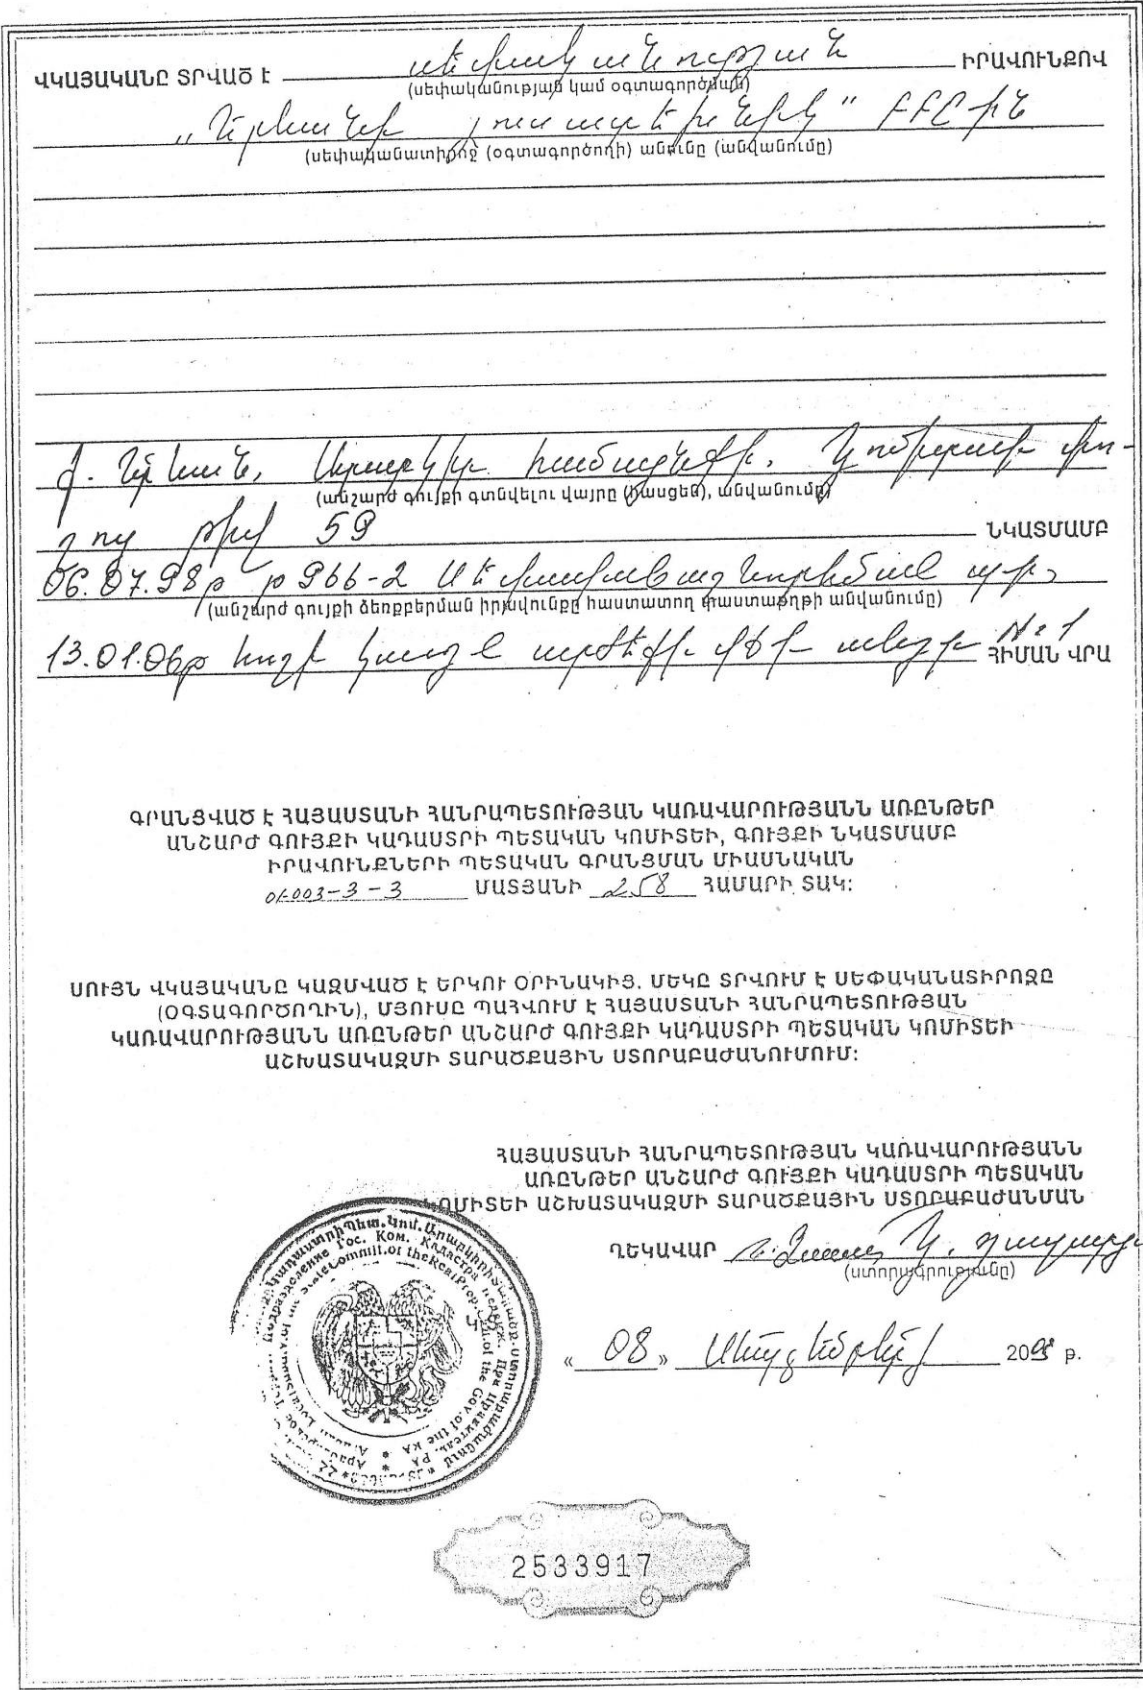 ՎԿԱՅԱԿԱՆԸ ՏՐՎԱԾ Է սեփականության ԻՐԱՎՈՒՆՔՈՎ
(սեփականության կամ օգտագործման)
„Երևանի լուսատեխնիկ" ԲԲԸ ին
(սեփականատիրոջ (օգտագործողի) անունը (անվանումը)
ք. Երևան, Արաբկիր համայնքի, Կոմիտասի փո-
(անշարժ գույքի գտնվելու վայրը (հասցեն), անվանումը)
ղոց թիվ 59 ՆԿԱՏՄԱՄԲ
06.07.98թ թ 966-2 Սեփականաշնորհման պ
(անշարժ գույքի ձեռքբերման իրավունքը հաստատող փաստաթղթի անվանումը)
13.01.06թ հողի կադ արժեքի վճ N: 1 ՀԻՄԱՆ ՎՐԱ
ԳՐԱՆՑՎԱԾ Է ՀԱՅԱՍՏԱՆԻ ՀԱՆՐԱՊԵՏՈՒԹՅԱՆ ԿԱՌԱՎԱՐՈՒԹՅԱՆՆ ԱՌԸՆԹԵՐ
ԱՆՇԱՐԺ ԳՈՒՅՔԻ ԿԱԴԱՍՏՐԻ ՊԵՏԱԿԱՆ ԿՈՄԻՏԵԻ, ԳՈՒՅՔԻ ՆԿԱՏՄԱՄԲ
ԻՐԱՎՈՒՆՔՆԵՐԻ ՊԵՏԱԿԱՆ ԳՐԱՆՑՄԱՆ ՄԻԱՍՆԱԿԱՆ
01-003-3-3 ՄԱՏՅԱՆԻ 258 ՀԱՄԱՐԻ ՏԱԿ:
ՍՈՒՅՆ ՎԿԱՅԱԿԱՆԸ ԿԱԶՄՎԱԾ Է ԵՐԿՈՒ ՕՐԻՆԱԿԻՑ. ՄԵԿԸ ՏՐՎՈՒՄ Է ՍԵՓԱԿԱՆԱՏԻՐՈՋԸ
(ՕԳՏԱԳՈՐԾՈՂԻՆ), ՄՅՈՒՍԸ ՊԱՀՎՈՒՄ Է ՀԱՅԱՍՏԱՆԻ ՀԱՆՐԱՊԵՏՈՒԹՅԱՆ
ԿԱՌԱՎԱՐՈՒԹՅԱՆՆ ԱՌԸՆԹԵՐ ԱՆՇԱՐԺ ԳՈՒՅՔԻ ԿԱԴԱՍՏՐԻ ՊԵՏԱԿԱՆ ԿՈՄԻՏԵԻ
ԱՇԽԱՏԱԿԱԶՄԻ ՏԱՐԱԾՔԱՅԻՆ ՍՏՈՐԱԲԱԺԱՆՈՒՄՈՒՄ:
ՀԱՅԱՍՏԱՆԻ ՀԱՆՐԱՊԵՏՈՒԹՅԱՆ ԿԱՌԱՎԱՐՈՒԹՅԱՆՆ
ԱՌԸՆԹԵՐ ԱՆՇԱՐԺ ԳՈՒՅՔԻ ԿԱԴԱՍՏՐԻ ՊԵՏԱԿԱՆ
ԿՈՄԻՏԵԻ ԱՇԽԱՏԱԿԱԶՄԻ ՏԱՐԱԾՔԱՅԻՆ ՍՏՈՐԱԲԱԺԱՆՄԱՆ
ՂԵԿԱՎԱՐ
(ստորագրությանը)
« 08 » Սեպտեմբերի 2008 թ.
2533917